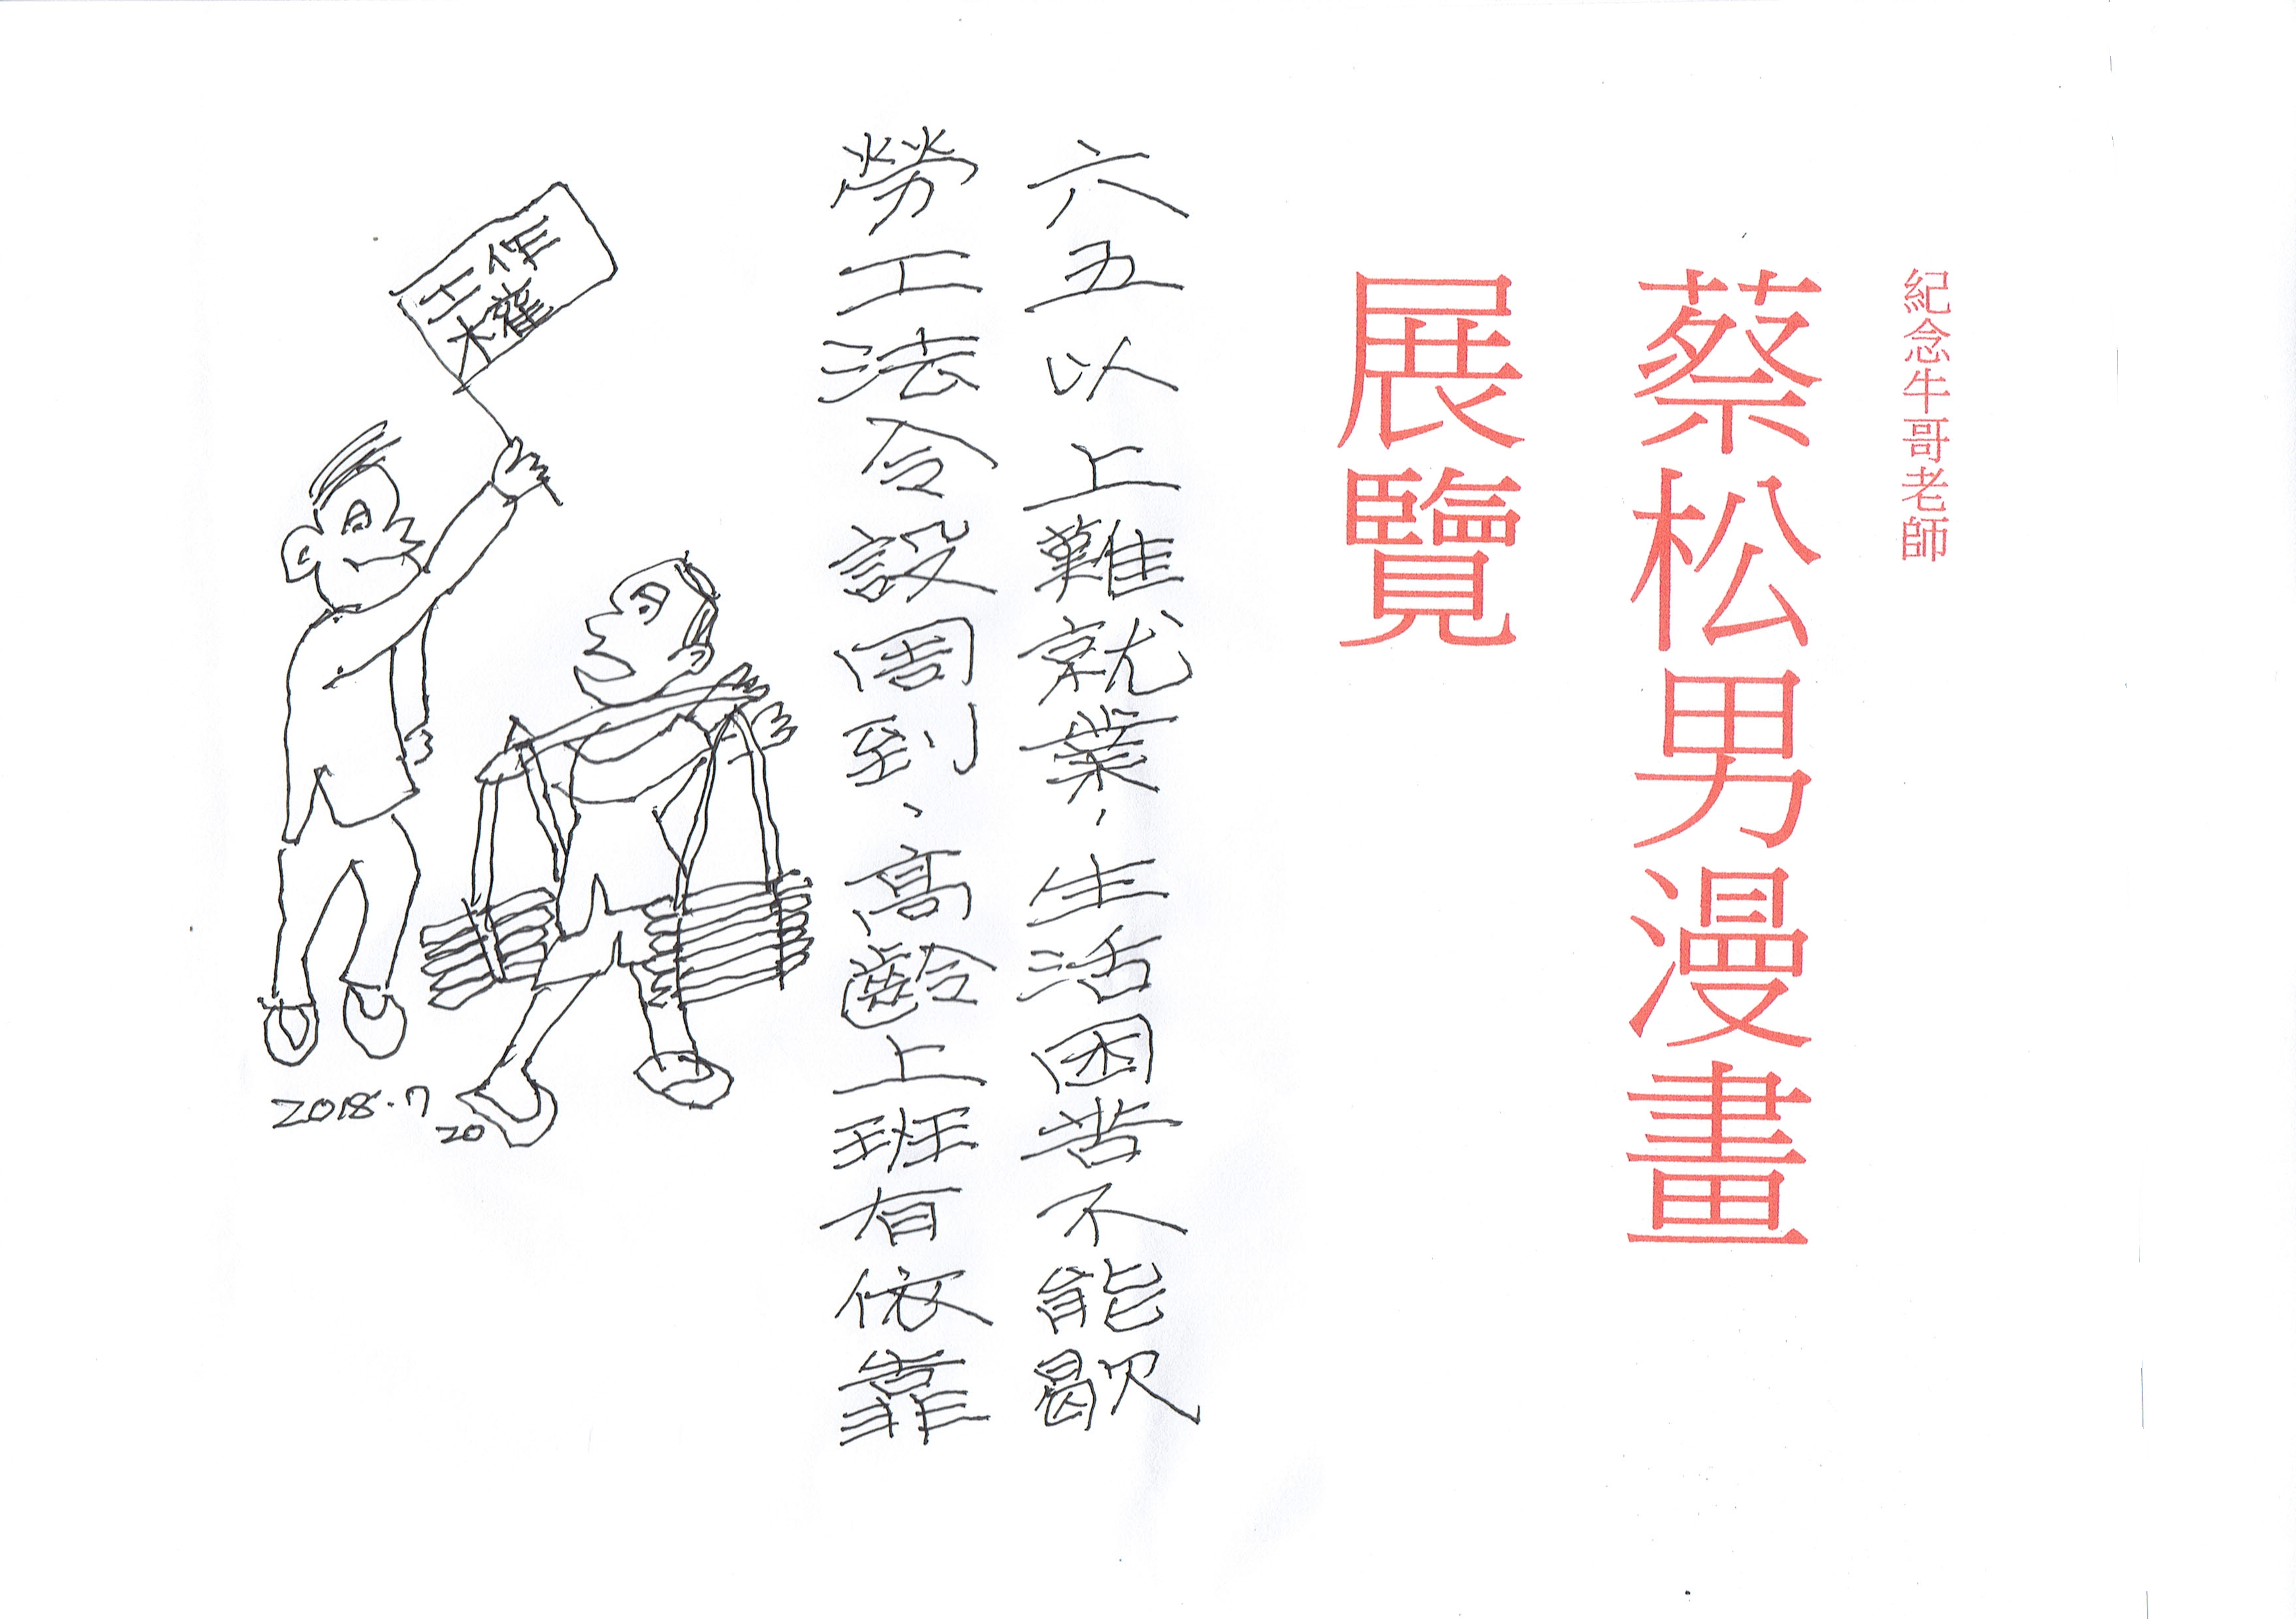 紀念牛哥老師
蔡松男漫畫
展覽
六五以上難就業，生活困苦不能歇
勞工法令設周到、高齡上班有依靠
工作
權
2018.7
20